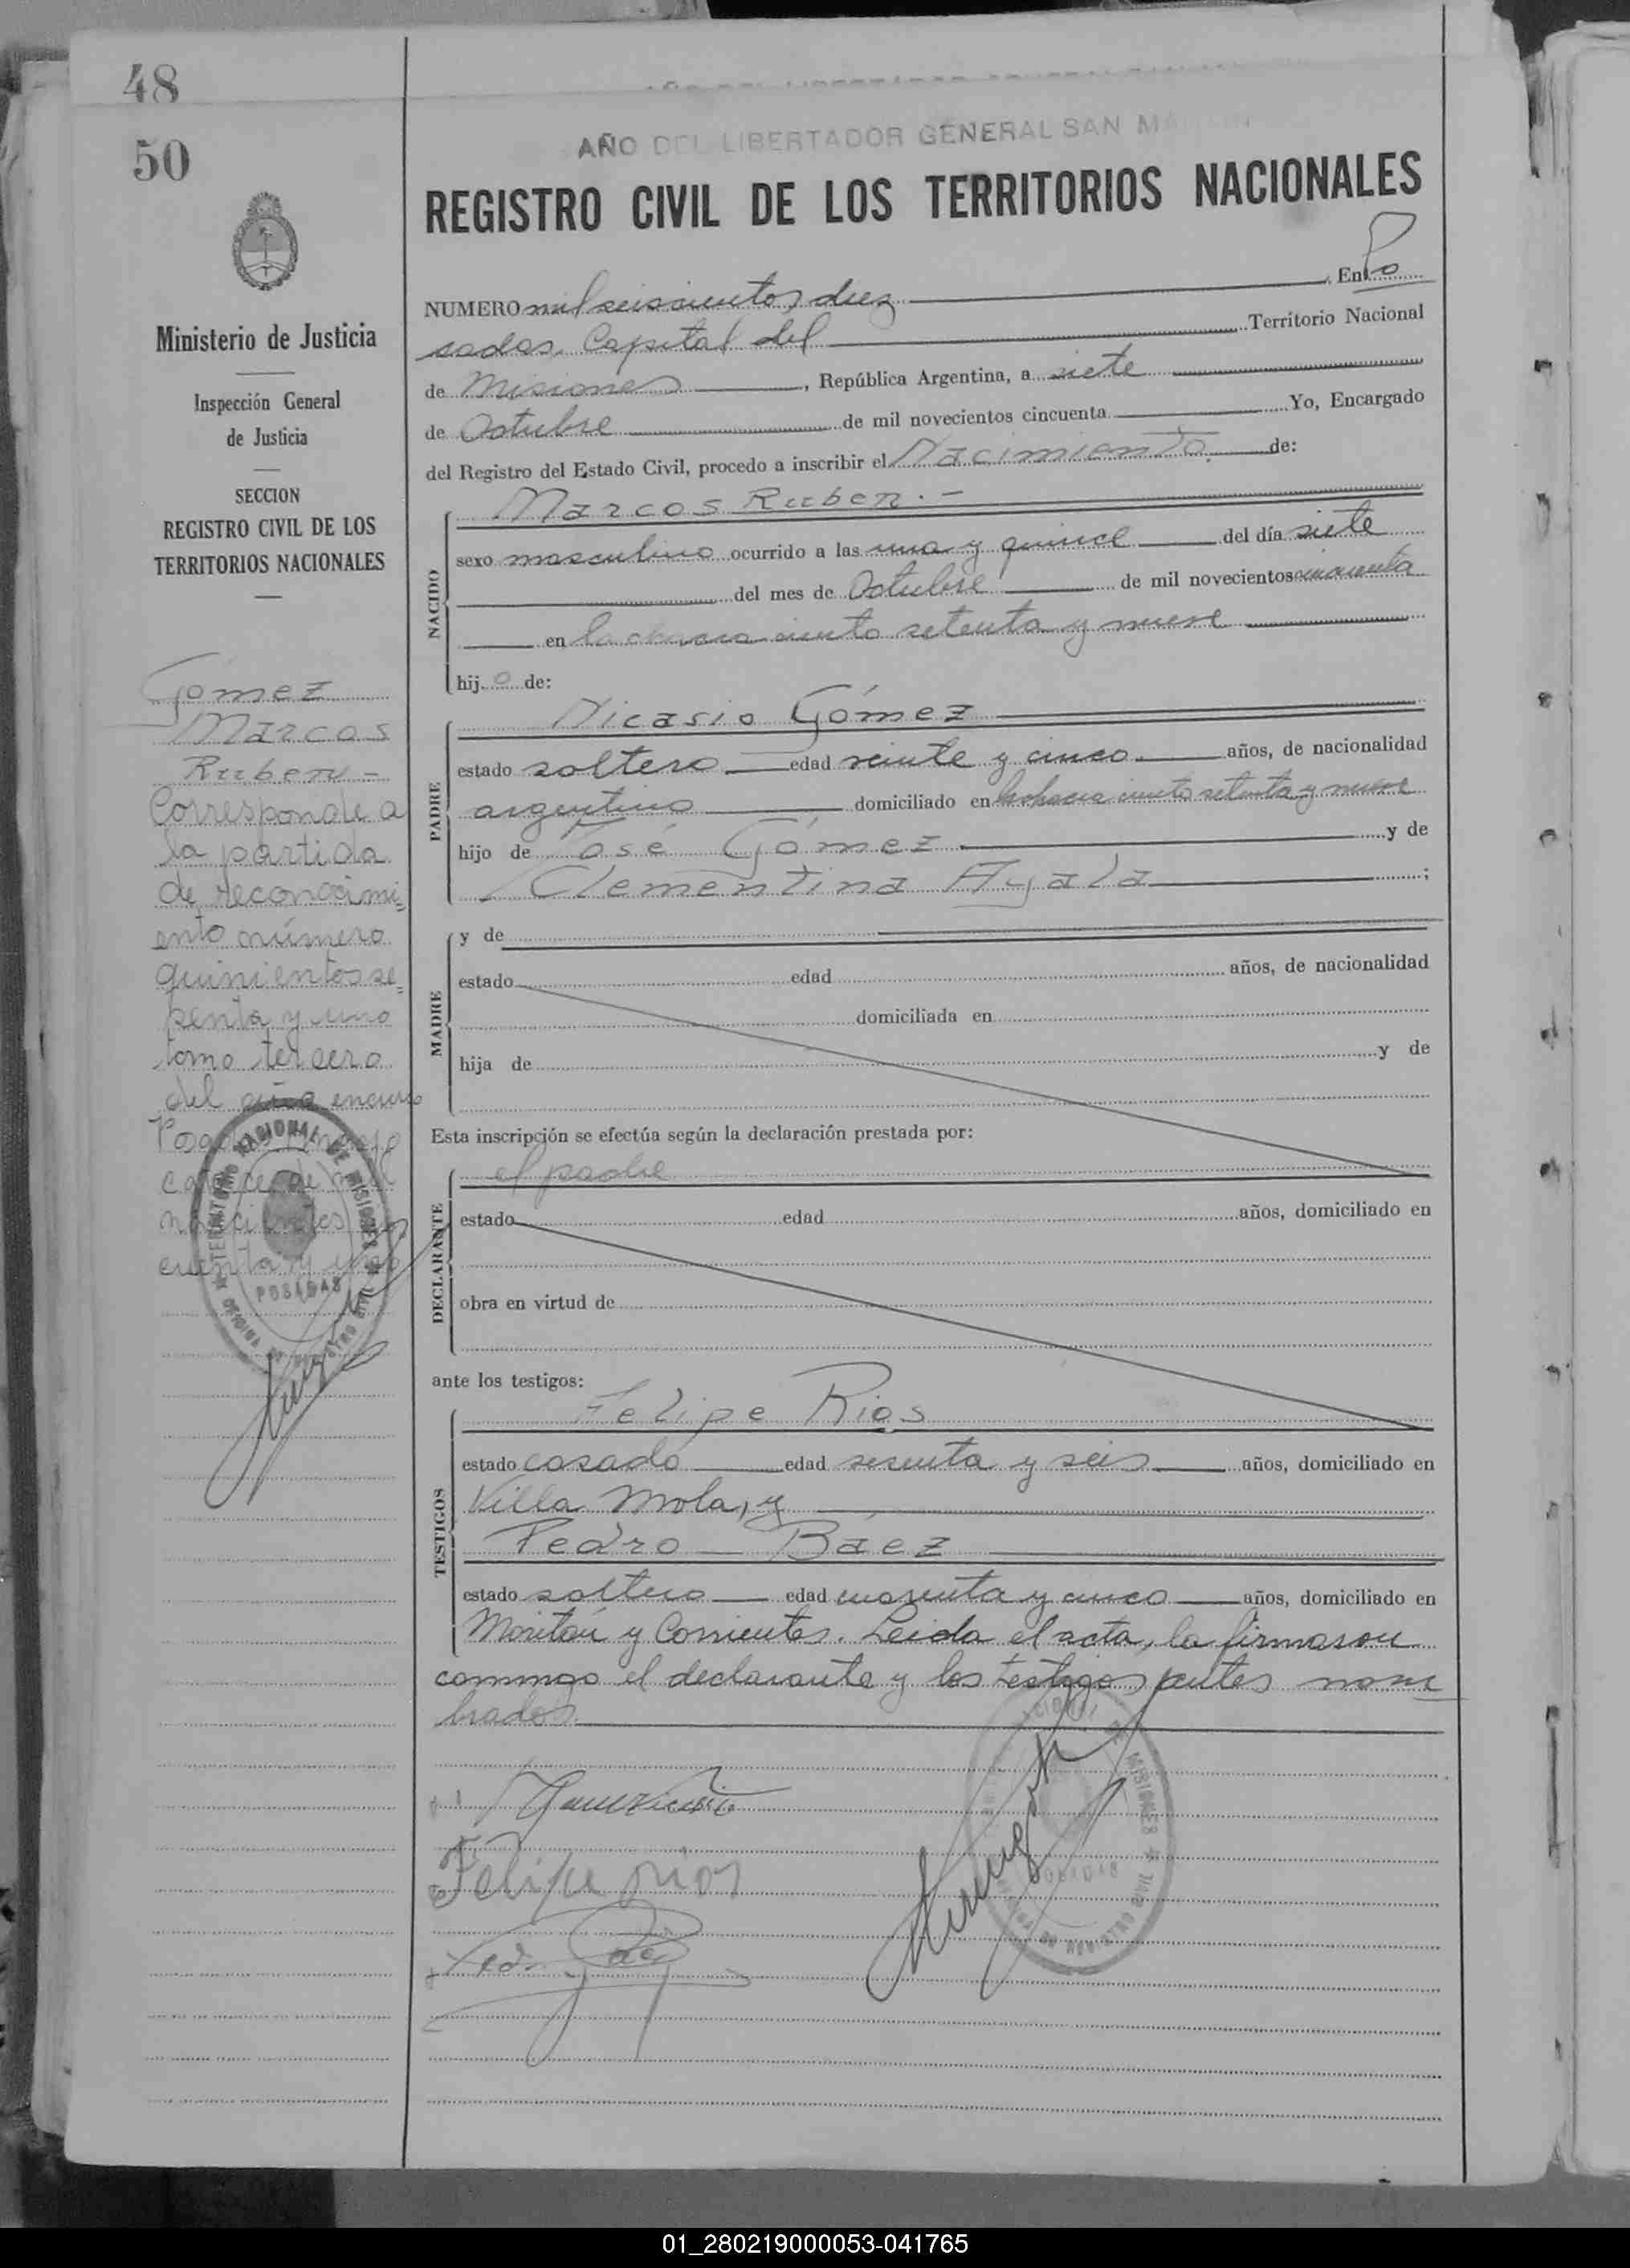 48
50
Ministerio de Justicia
Inspección General
de Justicia
SECCION
REGISTRO CIVIL DE LOS
TERRITORIOS NACIONALES
Gómez
Marcos
Ruben -
Corresponde a
la partida
de reconocimi=
ento número
quinientos se=
senta y uno
tomo tercero
del año en curso
catorce de mil
novecientos
cuenta y uno
TERRITORIO NACIONAL DE MISIONES
POSADAS
AÑO DEL LIBERTADOR GENERAL SAN MARTIN
REGISTRO CIVIL DE LOS TERRITORIOS NACIONALES
NUMERO mil seiscientos diez . En Po
sadas, Capital del Territorio Nacional
de Misiones , República Argentina, a siete
de Octubre de mil novecientos cincuenta Yo, Encargado
del Registro del Estado Civil, procedo a inscribir el Nacimiento de:
NACIDO
Marcos Ruben.-
sexo masculino ocurrido a las una y quince del día siete
del mes de Octubre de mil novecientos cincuenta
en la chacra ciento setenta y nueve
hij o de:
PADRE
Nicasio Gómez
estado soltero edad veinte y cinco años, de nacionalidad
argentino domiciliado en la chacra ciento setenta y nueve
hijo de José Gómez y de
Clementina Ayala ;
MADRE
y de
estado edad años, de nacionalidad
domiciliada en
hija de y de
Esta inscripción se efectúa según la declaración prestada por:
DECLARANTE
el padre
estado edad años, domiciliado en
obra en virtud de
ante los testigos:
TESTIGOS
Felipe Rios
estado casado edad sesenta y seis años, domiciliado en
Villa Mola, y
Pedro Báez
estado soltero edad cuarenta y cinco años, domiciliado en
Moritán y Corrientes. Leida el acta, la firmaron
conmigo el declarante y los testigos antes nom
brados.
Felipe rios
MISIONES
POSADAS
01_280219000053-041765